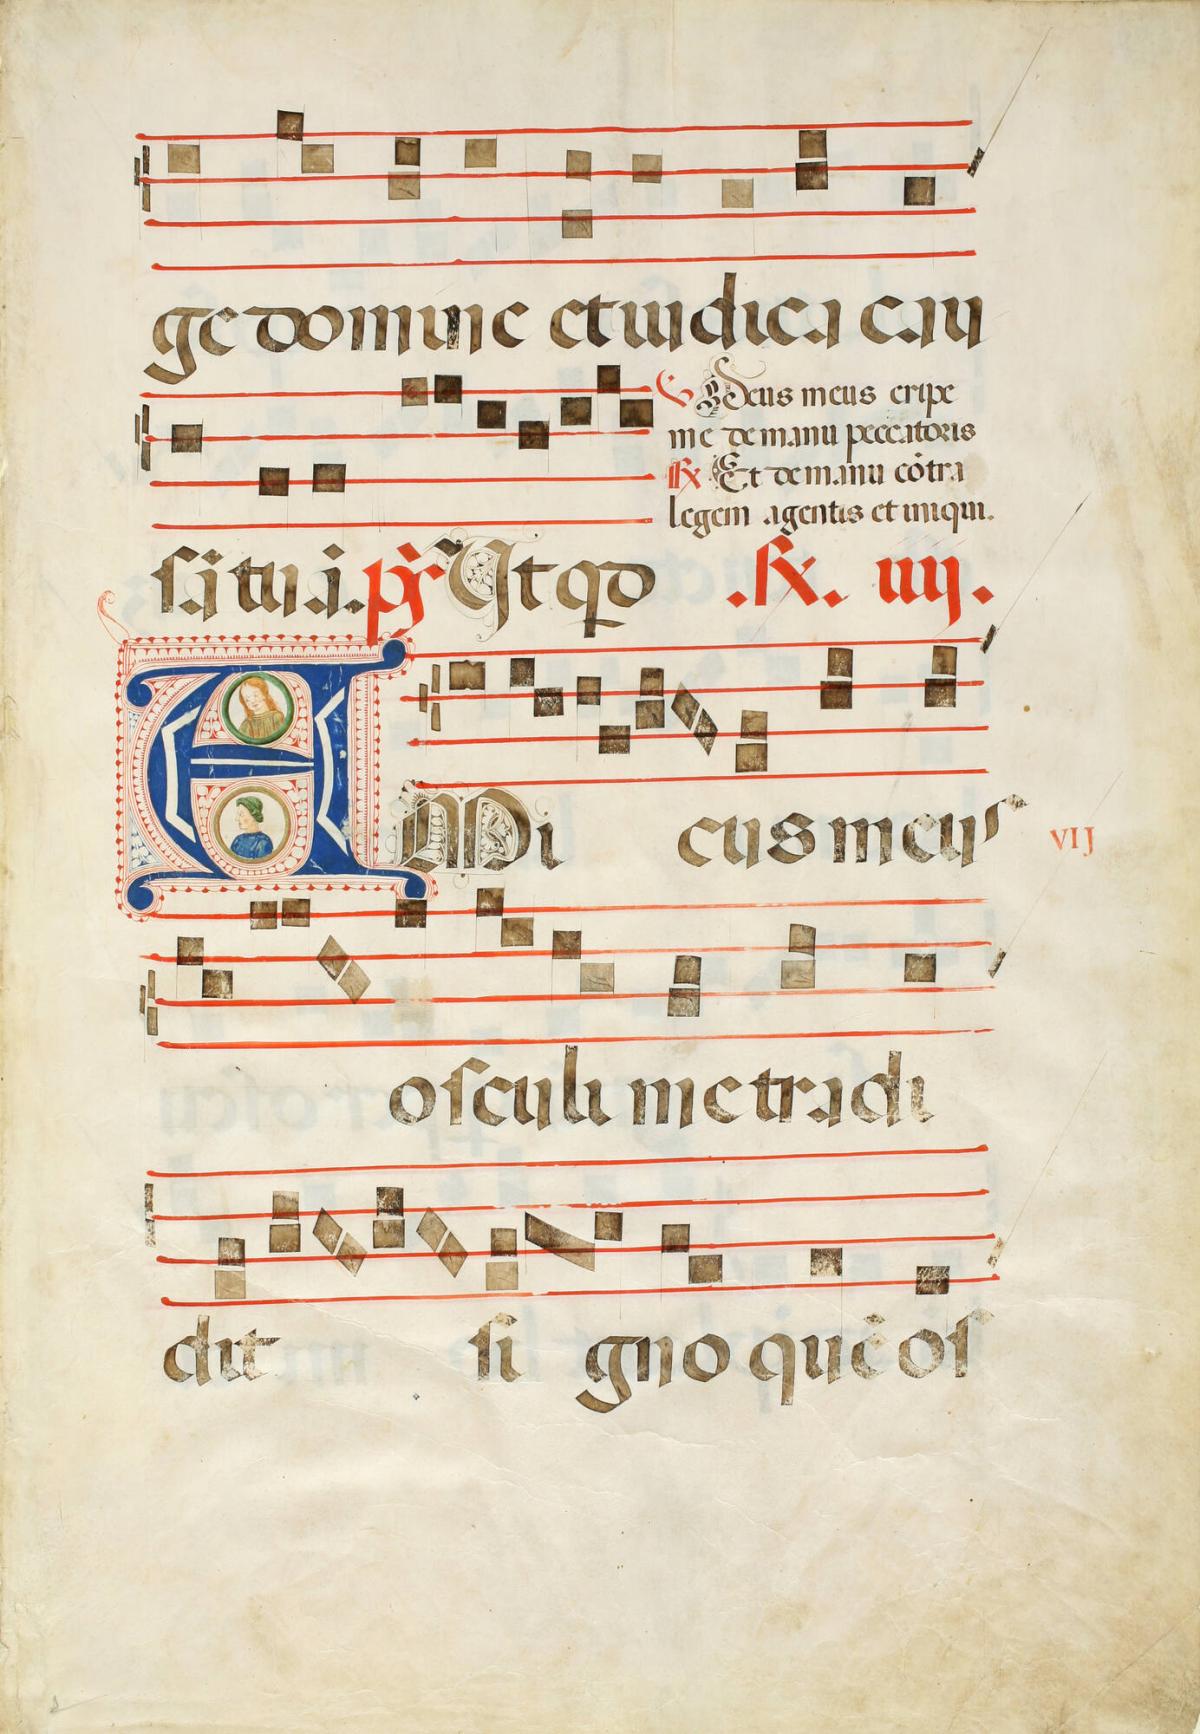 ge domine et iudica cau
℣ Deus meus eripe
me de manu peccatoris
℟ Et de manu cōtra
legem agentis et iniqui.
sā tuā. ps̄ Ut qd .℟. iiij.
AMicus meus
VIJ
osculi me tradi
dit si gno quē os